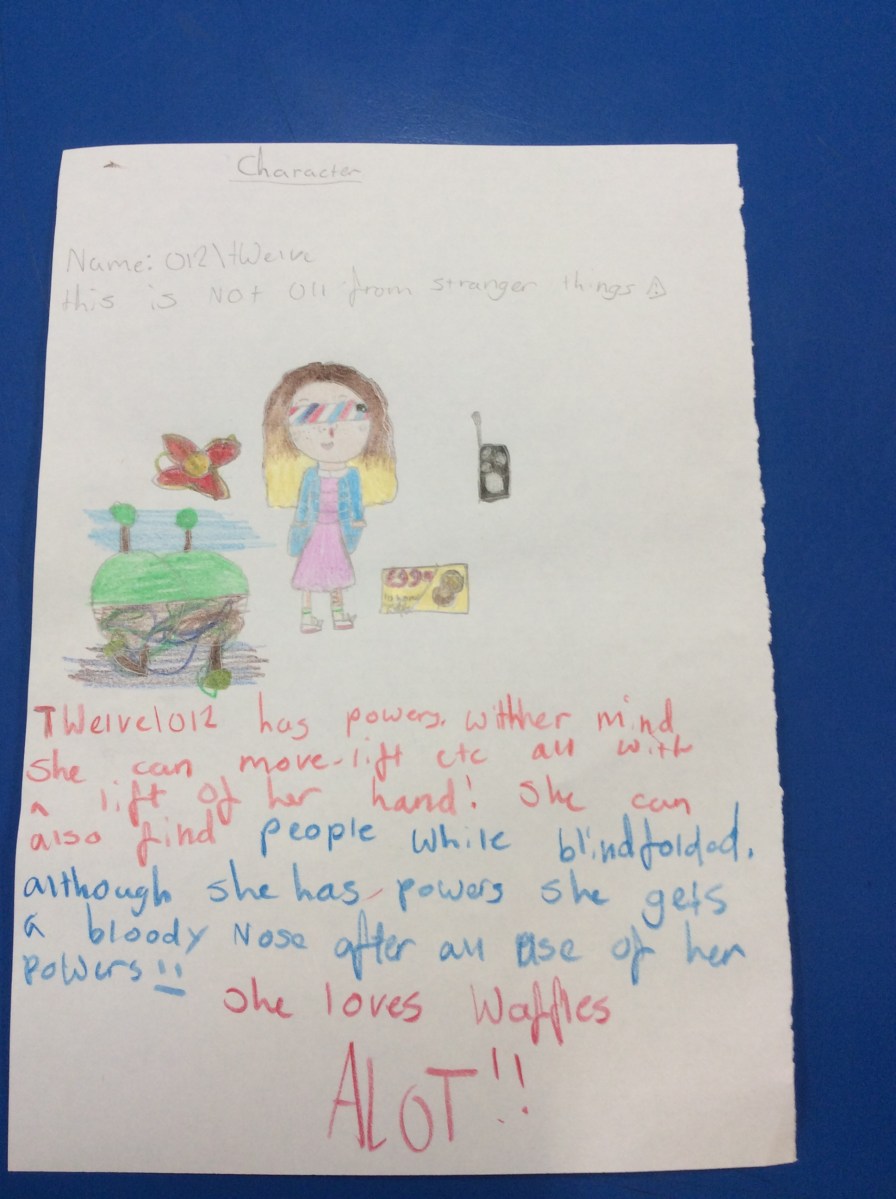 Character
Name: 012\twelve
this is NOt 011 from stranger things
TWelve1012 has powers. withher mind
She can move-lift etc all with
a lift of her hand! She can
also find people while blindfolded.
although she has powers she gets
a bloody Nose after all use of her
powers!!
She loves Waffles
ALOT!!